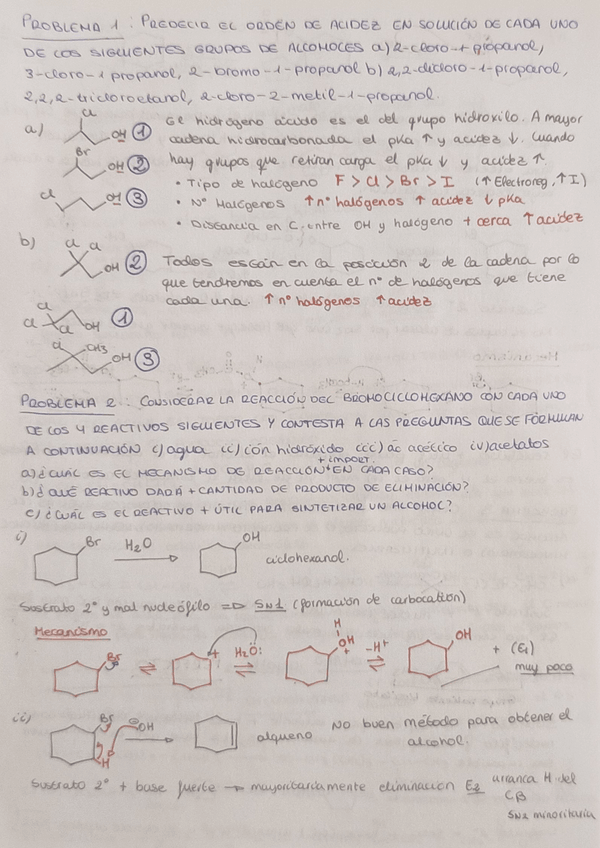 PROBLEMA 1: PREDECIR EL ORDEN DE ACIDEZ EN SOLUCIÓN DE CADA UNO
DE LOS SIGUIENTES GRUPOS DE ALCOHOLES a) 2-cloro-1-propanol,
3-cloro-1 propanol, 2-bromo-1-propanol b) 2,2-dicloro-1-propanol,
2,2,2-tricloroetanol, 2-cloro-2-metil-1-propanol.
a)
Cl
OH 1
Br
OH 2
Cl
OH 3
El hidrógeno ácido es el del grupo hidroxilo. A mayor
cadena hidrocarbonada el pKa ↑ y acidez ↓. Cuando
hay grupos que retiran carga el pKa ↓ y acidez ↑.
• Tipo de halógeno F > Cl > Br > I (↑Electroneg, ↑I)
• Nº Halógenos ↑ nº halógenos ↑ acidez ↓ pKa
• Distancia en C entre OH y halógeno + cerca ↑ acidez
b)
Cl Cl
OH 2
Todos están en la posición 2 de la cadena por lo
que tendremos en cuenta el nº de halógenos que tiene
cada una. ↑ nº halógenos ↑ acidez
Cl
Cl Cl OH 1
Cl CH3
OH 3
PROBLEMA 2: CONSIDERAR LA REACCIÓN DEL BROMOCICLOHEXANO CON CADA UNO
DE LOS 4 REACTIVOS SIGUIENTES Y CONTESTA A LAS PREGUNTAS QUE SE FORMULAN
A CONTINUACIÓN i) agua ii) ión hidróxido iii) ác acético iv) acetatos
+ import.
a) ¿CUÁL ES EL MECANISMO DE REACCIÓN EN CADA CASO?
b) ¿QUÉ REACTIVO DARÁ + CANTIDAD DE PRODUCTO DE ELIMINACIÓN?
c) ¿CUÁL ES EL REACTIVO + ÚTIL PARA SINTETIZAR UN ALCOHOL?
i)
Br H2O OH
ciclohexanol.
Sustrato 2º y mal nucleófilo => SN1 (formación de carbocatión)
Mecanismo
Br + H2Ö: H OH + -H+ OH + (E1)
muy poco
ii)
Br ⊖OH
H
alqueno
No buen método para obtener el
alcohol.
Sustrato 2º + base fuerte → mayoritariamente eliminación E2 arranca H del
Cβ
SN2 minoritaria